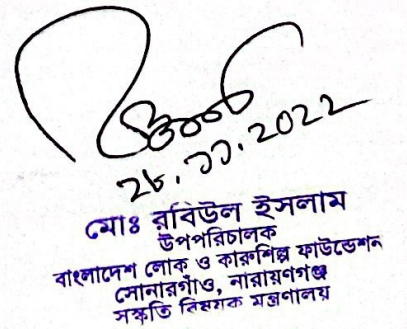 ২৮.১১.২০২২
মোঃ রবিউল ইসলাম
উপপরিচালক
বাংলাদেশ লোক ও কারুশিল্প ফাউন্ডেশন
সোনারগাঁও, নারায়ণগঞ্জ
সংস্কৃতি বিষয়ক মন্ত্রণালয়